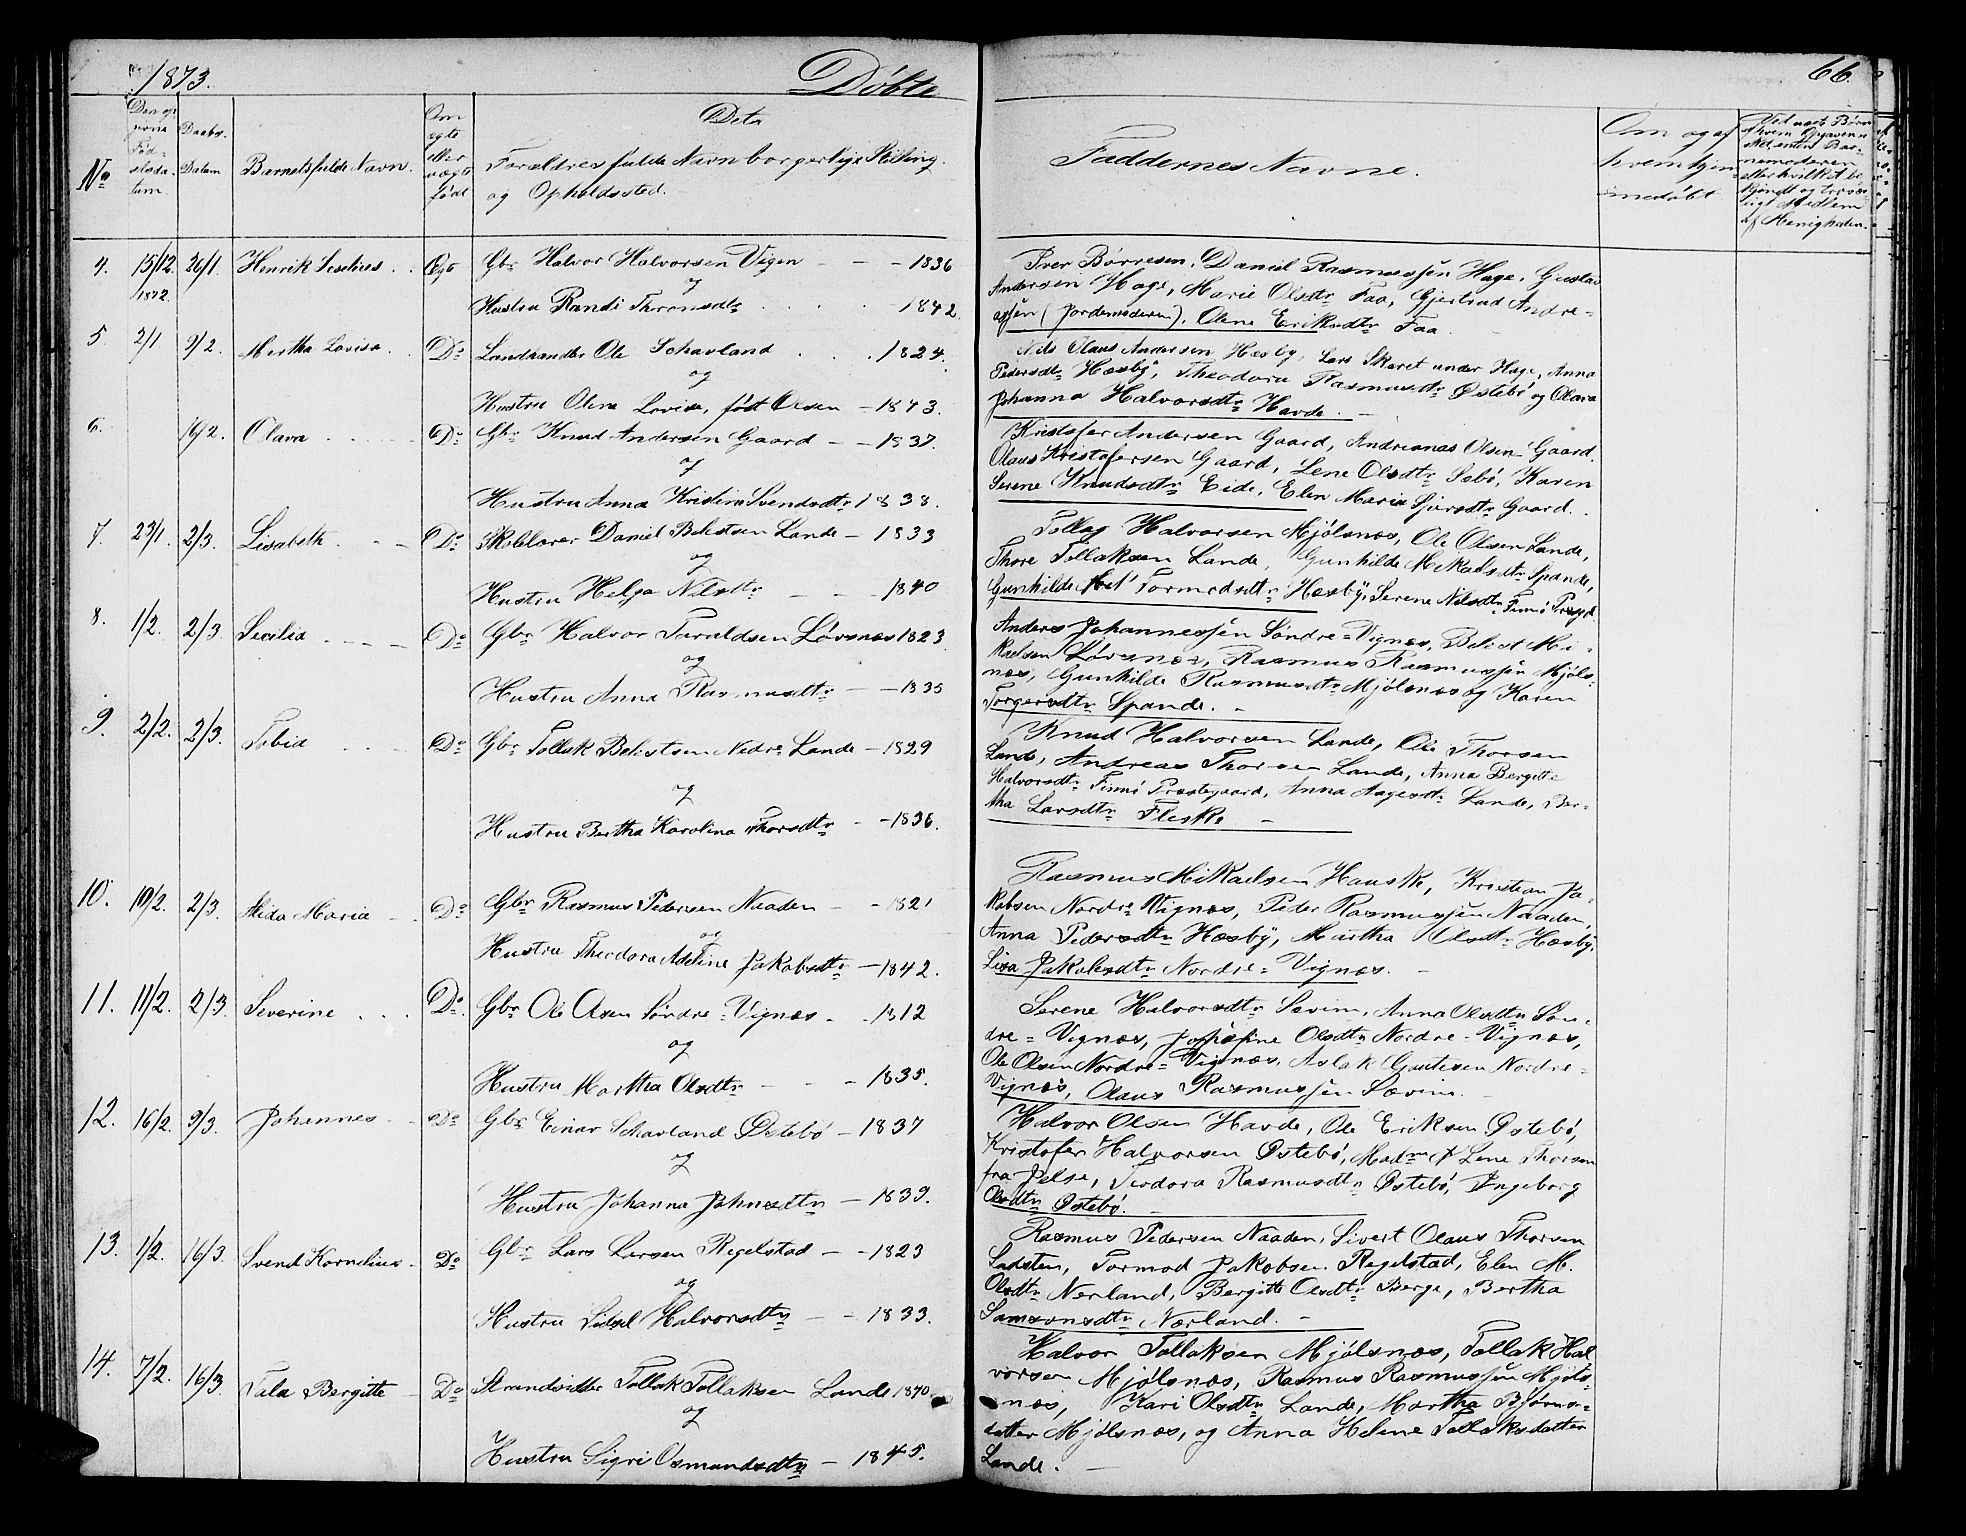 1873.
Döbte
66
No
Den op
givne
Fød-
selsda-
tum.
Daabs-
Datum
Barnets fulde Navn.
Om
egte
eller
uægte
født
Dets
Forældres fulde Navn borgerlige Stilling
og Opholdssted.
Faddernes Navne.
Om og af
hvem hjem-
medøbt
4. 15/12 1872. 26/1. Henrik . . Egte Gbr Halvor Halvorsen Vigen - - - 1836
og
Hustru Randi Thronsdtr . . . . 1842.
Iver Børresen, Daniel Rasmussen Hage, Gustav
Andersen Hage, Marie Olsdtr Faa, Gjertrud Andre-
asen (Jordemoderen), Olene Eriksdtr Faa.
5. 2/1 9/2. Mertha Lovisa . . Do Landhandler Ole Schavland . . . 1824.
og
Hustru Olene Lovise, født Olsen - 1843.
Nils Olaus Andersen Hæsby, Lars Skaret under Hage, Anna
Pedersdtr Hæsby, Theodora Rasmusdtr Østebø og Olava
Johanna Halvorsdtr Havde. -
6. 16/2. Olava . . . . Do Gbr Knud Andersen Gaard - - 1837.
og
Hustru Anna Kristine Svendsdtr 1838.
Kristofer Andersen Gaard, Andreanas Olsen Gaard.
Olaus Kristofersen Gaard, Lene Olsdtr Sebø, Karen
Serene Knudsdtr Eide, Elen Maria Sjursdtr Gaard. -
7. 23/1. 2/3. Lisabeth . - - Do Skolelærer Daniel Belestsen Lande - 1833
og
Hustru Helga Nilsdtr - - - 1840
Tollag Halvorsen Mjølsnæs, Ole Olsen Lande,
Thore Tollaksen Lande, Gunhilde Mikalsdtr Spande,
Gunhilde Tormodsdtr Hæsby, Serene Nilsdtr Finnø Prsgd.
8. 1/2. 2/3. Secilia - - - Do Gbr Halvor Taraldsen Løvsnæs 1823.
og
Hustru Anna Rasmusdtr - - 1835
Anders Johannessen Søndre-Vignæs, Belest Mi-
kaelsen Løvsnæs, Rasmus Rasmussen Mjøls-
næs, Gunhilde Rasmusdtr Mjølsnæs og Karen
Torgersdtr Spande. -
9. 2/2. 2/3. Tobia . . . Do Gbr Tollak Belestsen Nedre Lande - 1829
og
Hustru Bertha Karolina Thorsdtr - - 1836.
Knud Halvorsen Lande, Ole Thorsen
Lande, Andreas Thorsen Lande, Anna Bergitte
Halvorsdtr Finnø Præstegaard, Anna Aagesdtr Lande, Ber-
tha Larsdtr Fleske. -
10. 10/2. 2/3. Maria - . Do Gbr Rasmus Pedersen Naaden - - 1821
og
Hustru Theodora Adeline Jakobsdtr - 1842.
Rasmus Mikaelsen Hauske, Kristian Ja-
kobsen Nordre Vignæs, Peder Rasmussen Naaden,
Anna Pedersdtr Hæsby, Martha Olsdtr Hæsby,
Lisa Jakobsdtr Nordre-Vignæs. -
11. 11/2. 2/3. Severine . . . Do. Gbr Ole Olsen Søndre-Vignæs - . 1812
og
Hustru Martha Olsdtr - - - 1835.
Serene Halvorsdtr Sevim, Anna Olsdtr Søn-
dre-Vignæs, Josefine Olsdtr Nordre-Vignæs,
Ole Olsen Nordre-Vignæs, Aslak Gautesen Nordre-
Vignæs, Olaus Rasmussen Sævim. -
12. 16/2. 9/3. Johannes - . Do Gbr Einar Schavland Østebø - 1837
og
Hustru Johanna Johnsdtr - 1839.
Halvor Olsen Havde, Ole Eriksen Østebø,
Kristofer Halvorsen Østebø, Madm Lene Thorsen
fra Jelse, Teodora Rasmusdtr Østebø, Ingeborg
Olsdtr Østebø. -
13. 1/2. 16/3. Svend Kornelius . Do Gbr Lars Larsen Regelstad - - 1823
og
Hustru Sidsel Halvorsdtr - - 1833.
Rasmus Pedersen Naaden, Sivert Olaus Thorsen
Ladsten, Tormod Jakobsen Regelstad, Elen M.
Olsdtr Nerland, Bergitte Olsdtr Berge, Bertha
Samsonsdtr Nærland. -
14. 7/2. 16/3. Tala Bergitte - Do Strandsidder Tollak Tollaksen Lande 1840
og
Hustru Sigri Osmundsdtr - 1845.
Halvor Tollaksen Mjølsnæs, Tollak Hal
vorsen Mjølsnæs, Rasmus Rasmussen Mjøls-
næs, Kari Olsdtr Lande, Martha Bjørns-
datter Mjølsnæs, og Anna Helene Tollaksdatter
Lande. -